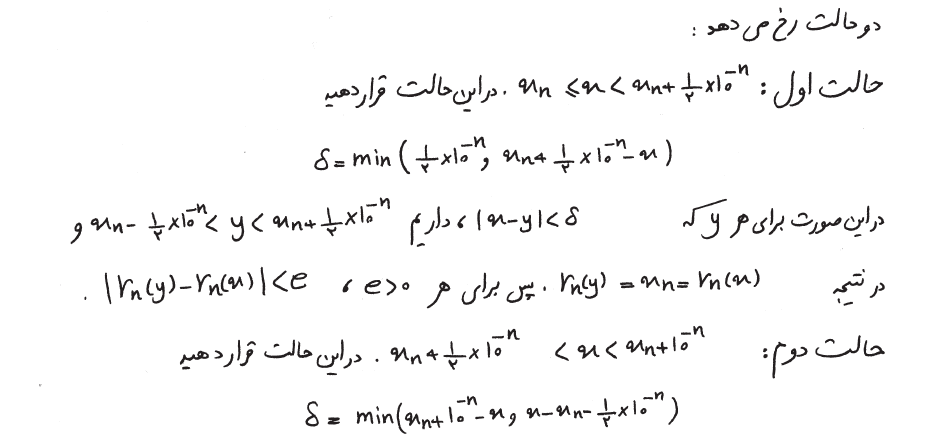 دو حالت رخ می دهد :
حالت اول : xₙ ≤ x < xₙ + ½ × ۱۰⁻ⁿ . در این حالت قرار دهید
δ = min ( ½ × ۱۰⁻ⁿ و xₙ + ½ × ۱۰⁻ⁿ - x )
در این صورت برای هر y که |x-y| < δ ، داریم xₙ - ½ × ۱۰⁻ⁿ < y < xₙ + ½ × ۱۰⁻ⁿ و
در نتیجه rₙ(y) = xₙ = rₙ(x) . پس برای هر e > ۰ ، |rₙ(y) - rₙ(x)| < e .
حالت دوم : xₙ + ½ × ۱۰⁻ⁿ < x < xₙ + ۱۰⁻ⁿ . در این حالت قرار دهید
δ = min(xₙ + ۱۰⁻ⁿ - x و x - xₙ - ½ × ۱۰⁻ⁿ)